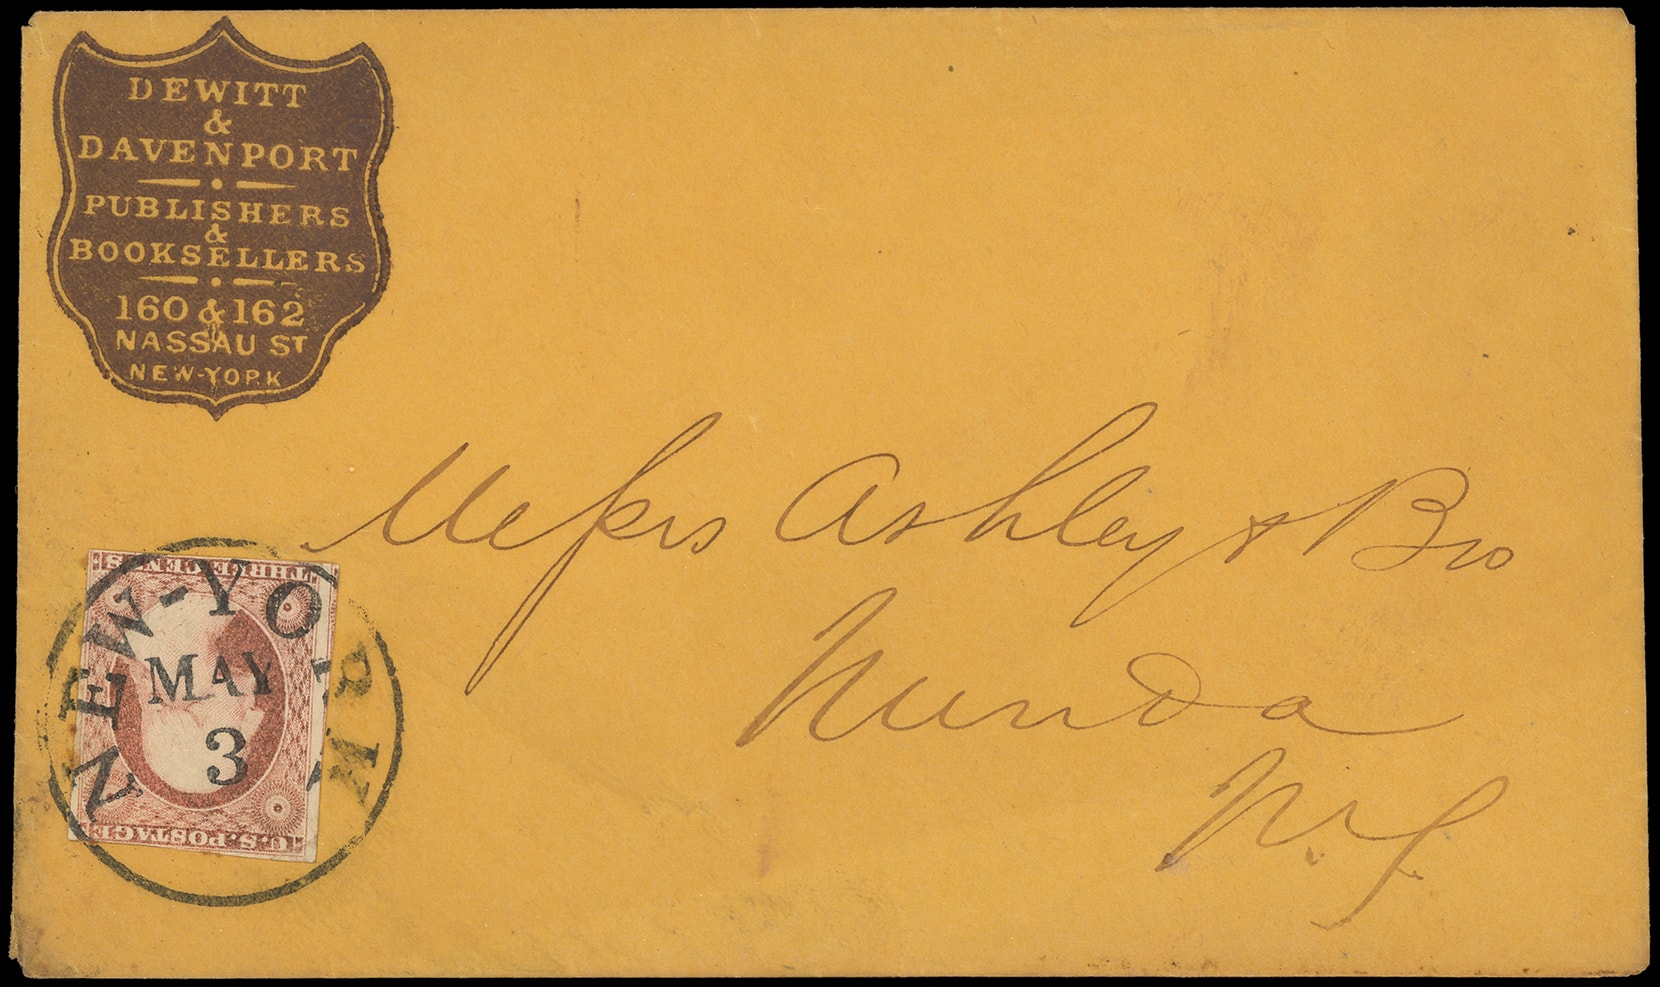 DEWITT
&
DAVENPORT
PUBLISHERS
&
BOOKSELLERS
160 & 162
NASSAU ST
NEW-YORK
Messrs Ashley & Bro
Nunda
N.Y.
THREE CENTS
NEW-YORK
MAY
3
U.S. POSTAGE